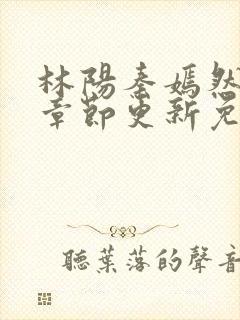 林陽秦嫣然
章節更新免
聽葉落的聲音